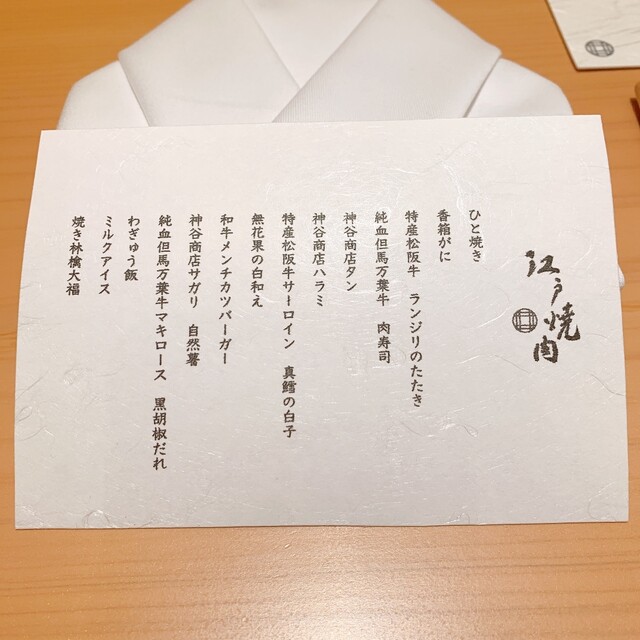 江戸焼肉
ひと焼き
香箱がに
特産松阪牛　ランジリのたたき
純血但馬万葉牛　肉寿司
神谷商店タン
神谷商店ハラミ
特産松阪牛サーロイン　真鱈の白子
無花果の白和え
和牛メンチカツバーガー
神谷商店サガリ　自然薯
純血但馬万葉牛マキロース　黒胡椒だれ
わぎゅう飯
ミルクアイス
焼き林檎大福